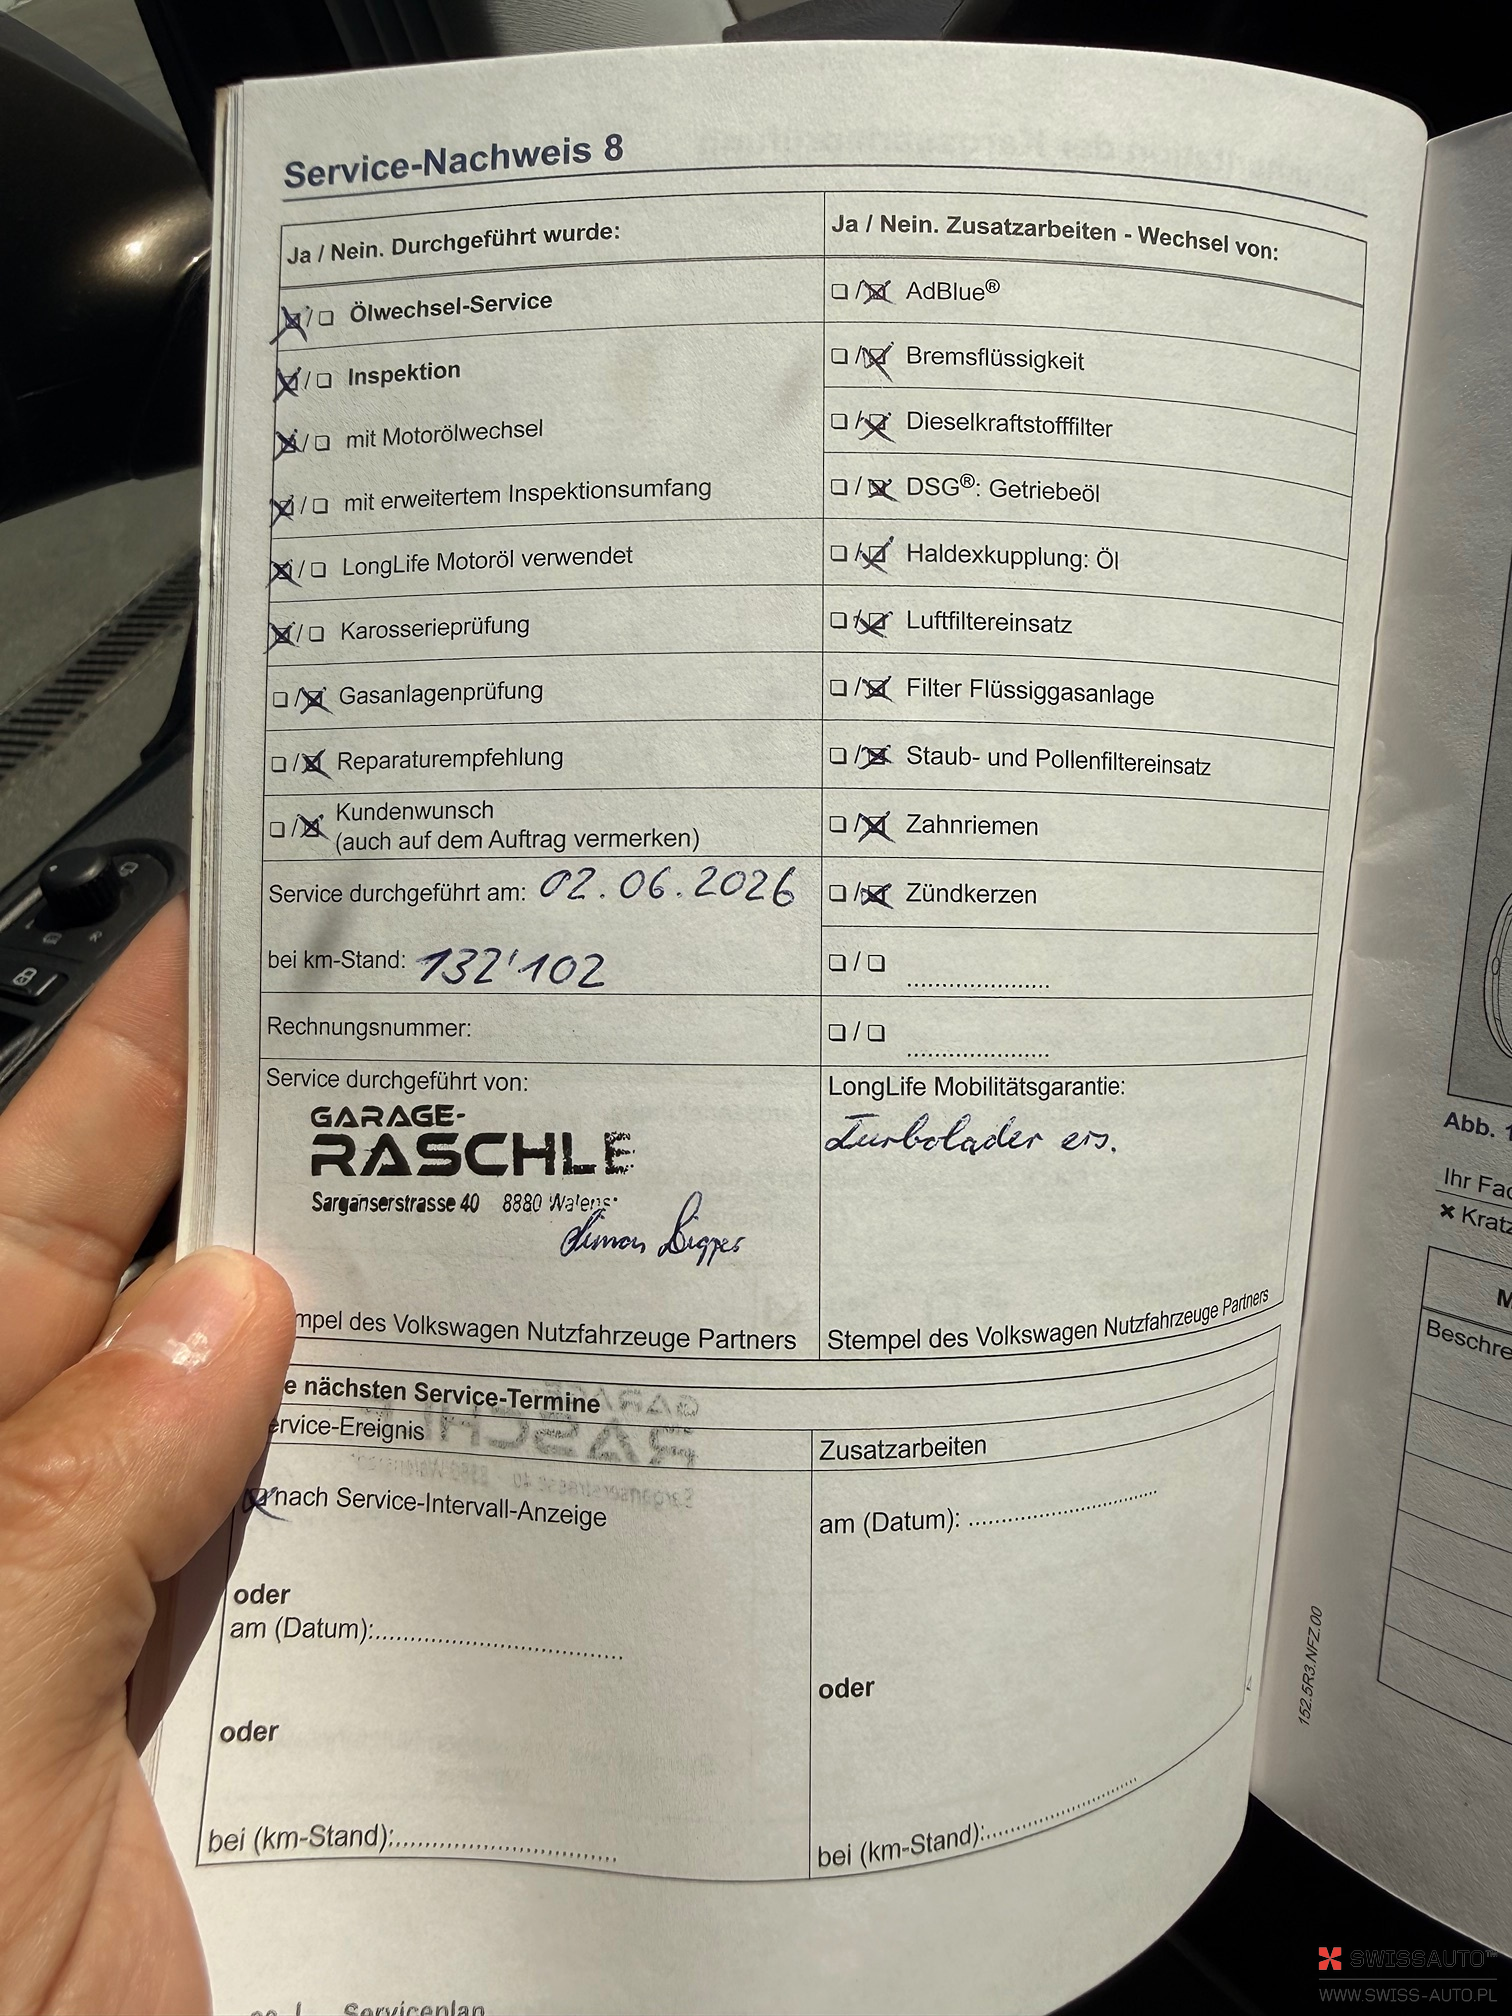 Service-Nachweis 8
Ja / Nein. Durchgeführt wurde:
Ölwechsel-Service
Inspektion
mit Motorölwechsel
mit erweitertem Inspektionsumfang
LongLife Motoröl verwendet
Karosserieprüfung
Gasanlagenprüfung
Reparaturempfehlung
Kundenwunsch
(auch auf dem Auftrag vermerken)
Service durchgeführt am: 02.06.2026
bei km-Stand: 132'102
Rechnungsnummer:
Service durchgeführt von:
GARAGE-
RASCHLE
Sarganserstrasse 40 8880
mpel des Volkswagen Nutzfahrzeuge Partners
Ja / Nein. Zusatzarbeiten - Wechsel von:
AdBlue®
Bremsflüssigkeit
Dieselkraftstofffilter
DSG®: Getriebeöl
Haldexkupplung: Öl
Luftfiltereinsatz
Filter Flüssiggasanlage
Staub- und Pollenfiltereinsatz
Zahnriemen
Zündkerzen
LongLife Mobilitätsgarantie:
Turbolader ers.
Stempel des Volkswagen Nutzfahrzeuge Partners
e nächsten Service-Termine
ervice-Ereignis
nach Service-Intervall-Anzeige
oder
am (Datum):
oder
bei (km-Stand):
Zusatzarbeiten
am (Datum):
oder
bei (km-Stand):
152.5R3.NFZ.00
Serviceplan
Abb. 1
Ihr Fac
Kratz
M
Beschre
SWISSAUTO™
WWW.SWISS-AUTO.PL